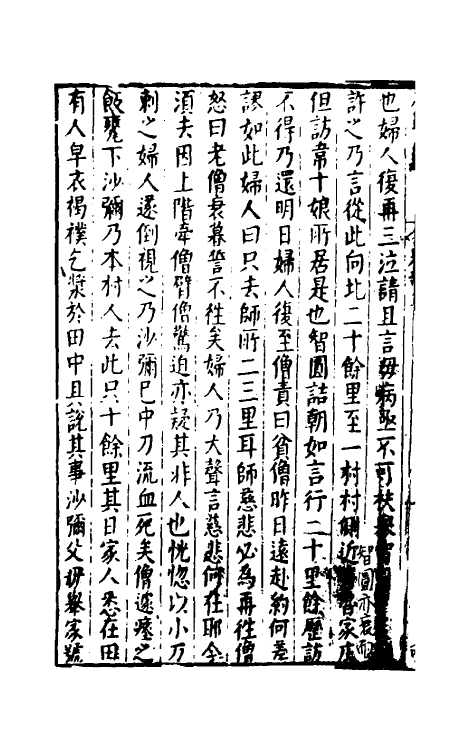 也婦人復再三泣請且言母病亟不可扶舉智圓亦哀而
許之乃言從此向北二十餘里至一村村側近有家店
但訪韋十娘所居是也智圓詰朝如言行二十里餘歷訪
不得乃還明日婦人復至僧責曰貧僧昨日遠赴約何差
謬如此婦人曰只去師所二三里耳師慈悲必為再徃僧
怒曰老僧衰暮誓不徃矣婦人乃大聲言慈悲何在耶今
須去因上階牽僧臂僧驚迫亦疑其非人也恍惚以小刀
刺之婦人遂倒視之乃沙彌巳中刀流血死矣僧遽瘞之
飯甕下沙彌乃本村人去此只十餘里其日家人悉在田
有人皁衣褐襆乞漿於田中且說其事沙彌父母舉家號